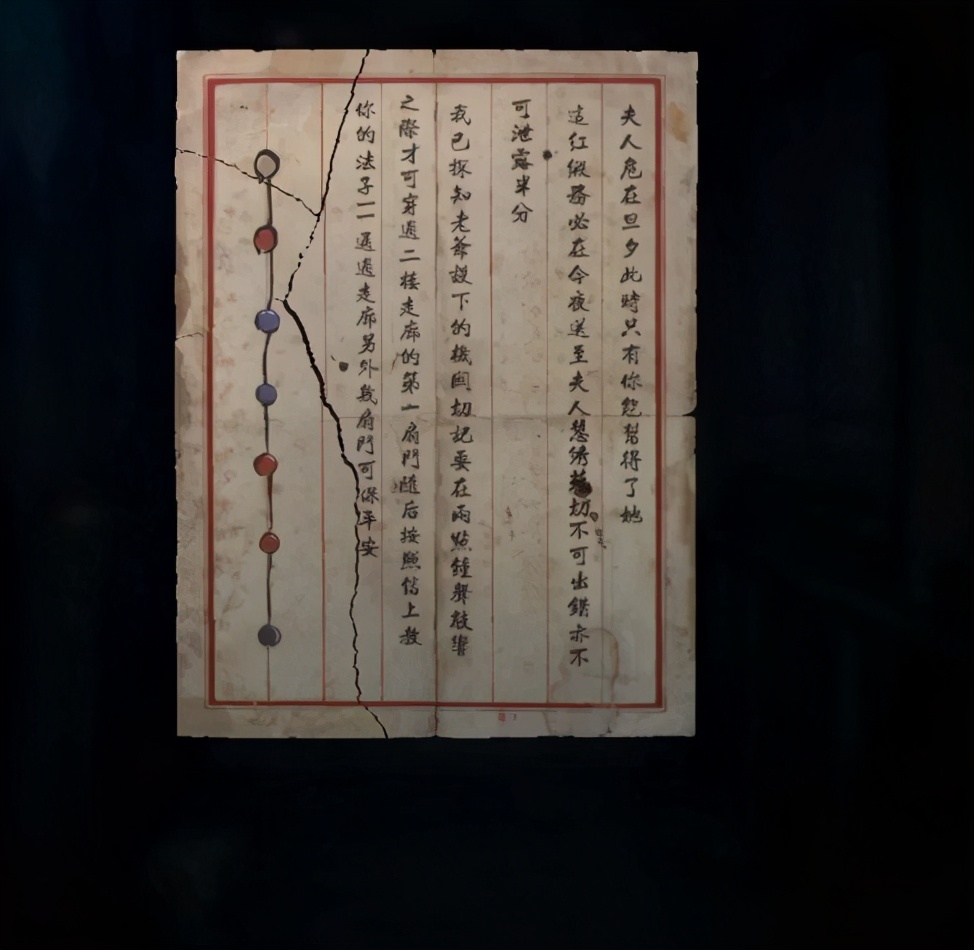 夫人危在旦夕此時只有你能幫得了她
這紅緞務必在今夜送至夫人切不可出錯亦不
可泄露半分
我已探知老爺設下的機関切記要在兩點鐘聲敲響
之際才可穿過二楼走廊的第一扇門隨后按照信上教
你的法子一一通過走廊另外幾扇門可保平安